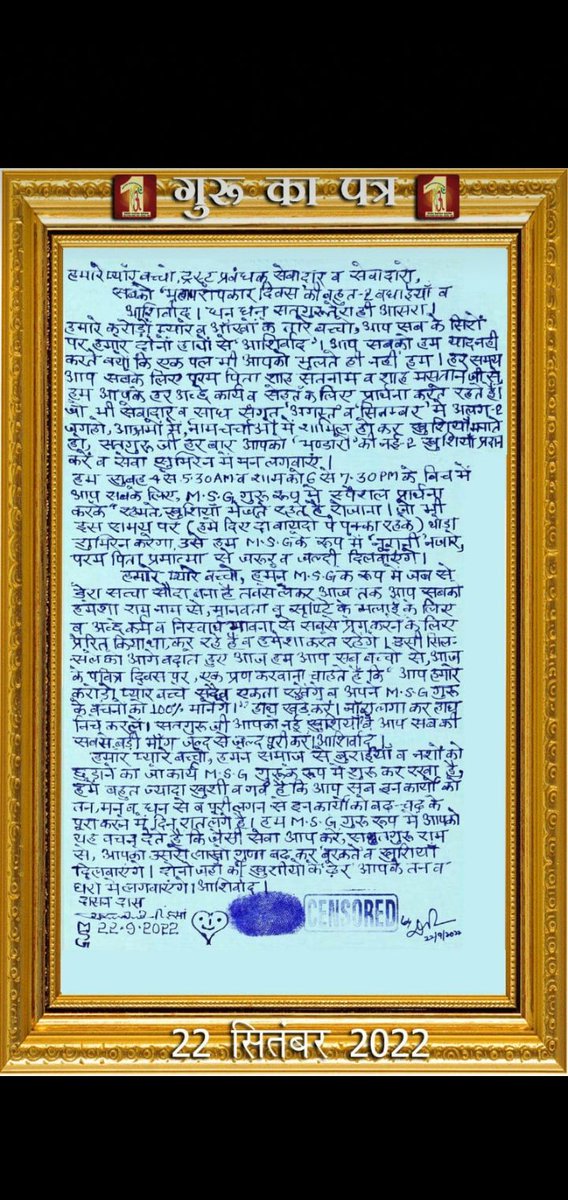 गुरू का पत्र
हमारे प्यारे बच्चों, ट्रस्ट प्रबंधक सेवादार व सेवादारों,
सबको "महापरोपकार दिवस की बहुत-2 बधाईयाँ व
आशिर्वाद। "धन धन सतगुरू तेरा ही आसरा।
हमारे करोड़ों प्यारे व आँखों के तारे बच्चो, आप सब के सिरों
पर हमारे दोनों हाथों से आशिर्वाद"। आप सबको हम याद नहीं
करते क्यों कि एक पल भी आपको भुलते ही नहीं हम। हर समय
आप सबके लिए परम पिता शाह सतनाम व शाह मस्तान जी से,
हम आपके हर अच्छे कार्य व सेहत के लिए प्रार्थना करते रहते हैं।
जो भी सेवादार व साध संगत, अगस्त व सितम्बर में अलग-2
जगहों, आश्रमों में, नामचर्चाओं में शामिल हो कर खुशियाँ मनाते
हो, सतगुरू जी हर बार आपको "भण्डारों" की नई-2 खुशियाँ प्रदान
करें व सेवा सुमिरन में मन लगवाएं।
हम सुबह 4 से 5:30AM व शाम को 6 से 7:30 PM के बिच में
आप सबके लिए, M.S.G गुरू रूप में स्पैशल प्रार्थना
करके "रहमतें, खुशियाँ भेजते रहते हैं रोजाना। जो भी
इस समय पर (हमें दिए दो वायदों पे पक्का रहके) थोड़ा
सुमिरन करेगा, उसे हम M.S.G के रूप में "नूरानी" नजारे,
परम पिता प्रमात्मा से जरूर व जल्दी दिलवाएंगे।
हमारे प्यारे बच्चों, हमने M.S.G के रूप में जब से
डेरा सच्चा सौदा बना है तब से लेकर आज तक आप सबको
हमेशा राम नाम से, मानवता व सृष्टि के भलाई के लिए
व अच्छे कर्म व निस्वार्थ भावना से सबसे प्रेम करने के लिए
प्रेरित किया था, कर रहे हैं व हमेशा करते रहेंगे। उसी सिल-
सिले को आगे बढाते हुए आज हम आप सब बच्चों से, आज
के पवित्र दिवस पर, एक प्रण करवाना चाहते हैं कि "आप हमारे
करोड़ों प्यारे बच्चे सदैव एकता रखेंगे व अपने M.S.G गुरू
के वचनों को 100% मानेंगे।" हाथ खड़े करें। नारा लगा कर हाथ
निचे करलें। सतगुरू जी आपको नई खुशियाँ दें व आप सब की
सबसे बड़ी माँग जल्द से जल्द पूरी करें। आशिर्वाद।
हमारे प्यारे बच्चों, हमने समाज से बुराईयाँ व नशों को
छुड़ाने का जो कार्य M.S.G गुरू के रूप में शुरू कर रखा है,
हमें बहुत ज्यादा खुशी व गर्व है कि आप सब इन कार्यों को
तन, मन व धन से व पूरी लगन से इन कार्यों को बढ़-चढ़ के
पूरा करने में दिन रात लगे हैं। हम M.S.G गुरू रूप में आपको
यह वचन देते हैं कि जैसी सेवा आप करें, सतगुरू राम
से, आपको उससे लाखों गुणा बढ़ कर बरकतें व खुशियाँ
दिलवाएंगे। दोनों जहाँ की खुशीयों के ढेर आपके तन व
घरों में लगवाएंगे। आशिर्वाद।
दासन दास
MSG 22.9.2022
CENSORED
22/9/2022
22 सितंबर 2022